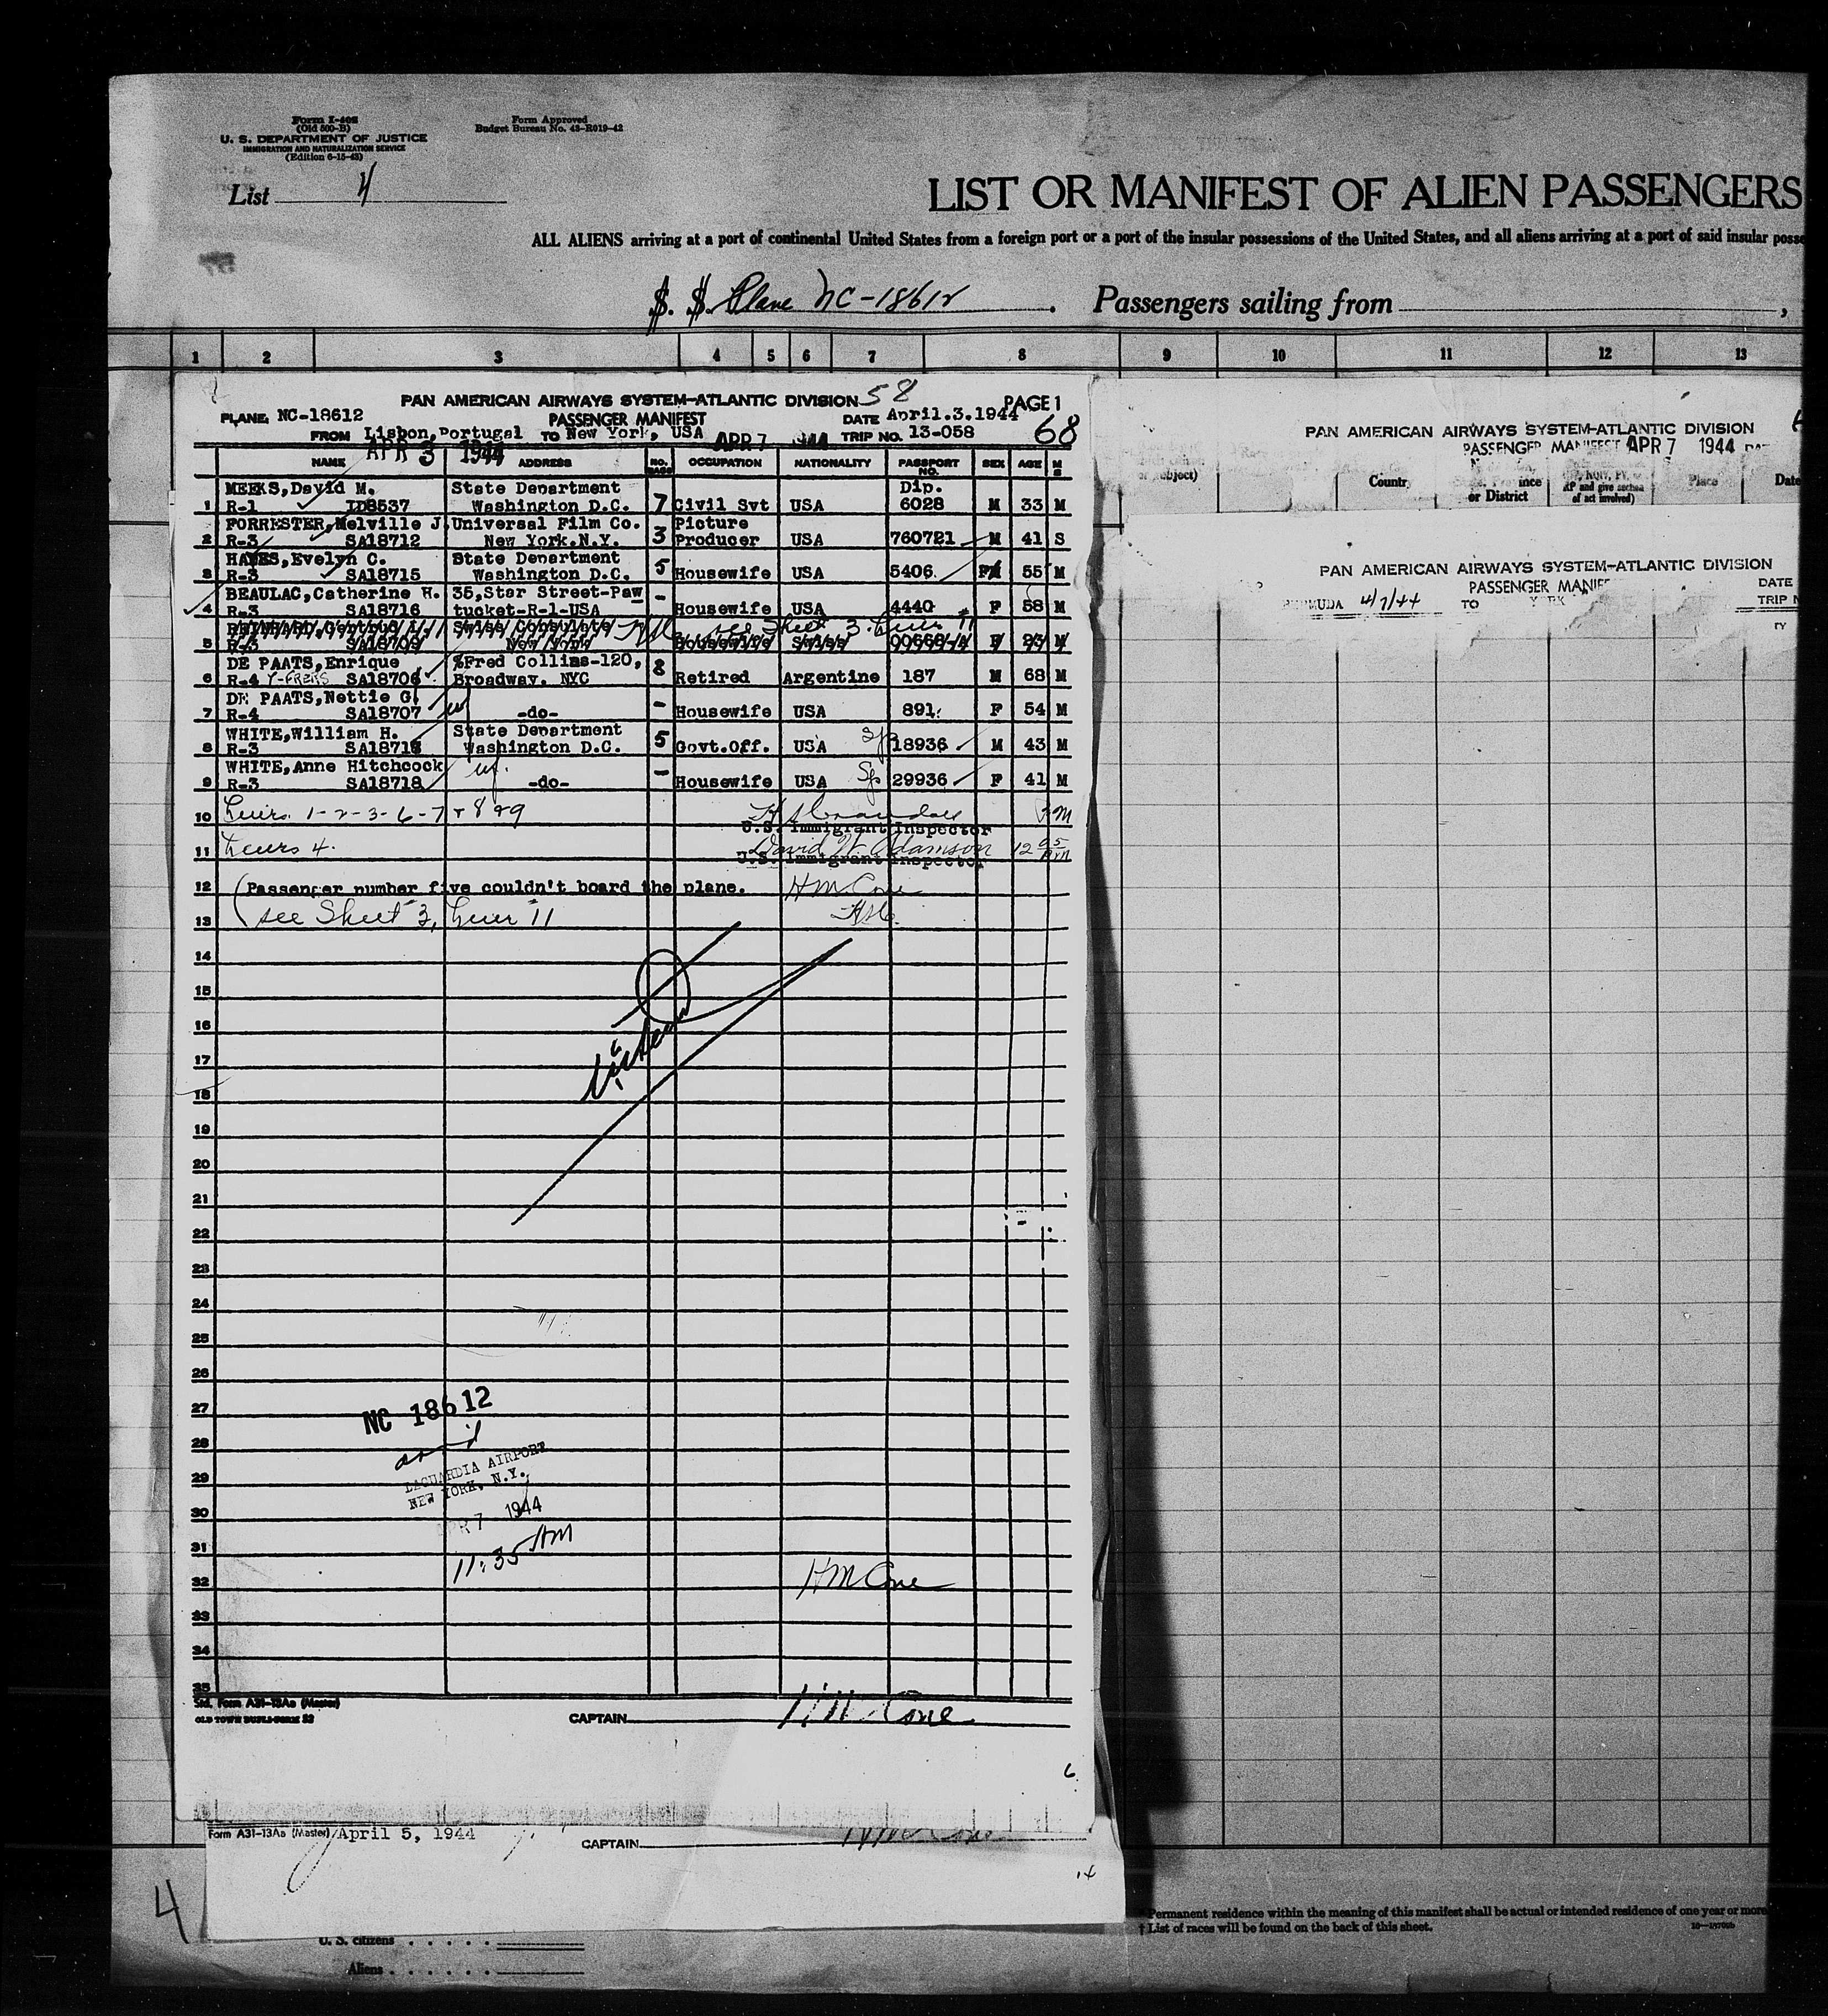 Form I-408
(Old 500-B)
U. S. DEPARTMENT OF JUSTICE
IMMIGRATION AND NATURALIZATION SERVICE
(Edition 6-15-43)
Form Approved
Budget Bureau No. 43-R019-42
List 4
LIST OR MANIFEST OF ALIEN PASSENGERS
ALL ALIENS arriving at a port of continental United States from a foreign port or a port of the insular possessions of the United States, and all aliens arriving at a port of said insular posse
S. S. Plane NC-18612. Passengers sailing from ,
1 2 3 4 5 6 7 8 9 10 11 12 13
PAN AMERICAN AIRWAYS SYSTEM-ATLANTIC DIVISION 58 PAGE 1
PLANE NC-18612 PASSENGER MANIFEST DATE April.3.1944
FROM Lisbon, Portugal TO New York, USA APR 7 1944 TRIP NO. 13-058 68
APR 3 1944
NAME ADDRESS NO. BAGS OCCUPATION NATIONALITY PASSPORT NO. SEX AGE M S
MEEKS, David M. State Department Dip.
1 R-1 ID8537 Washington D.C. 7 Civil Svt USA 6028 M 33 M
FORRESTER, Melville J. Universal Film Co. Picture
2 R-3 SA18712 New York.N.Y. 3 Producer USA 760721 M 41 S
HAYES, Evelyn C. State Department
3 R-3 SA18715 Washington D.C. 5 Housewife USA 5406 F 55 M
BEAULAC, Catherine H. 35,Star Street-Paw
4 R-3 SA18716 tucket-R-1-USA - Housewife USA 4440 F 58 M
Swiss Consulate see Sheet 3. Line 11
5 R-3 SA18709 New York Housewife Swiss
DE PAATS, Enrique %Fred Collins-120,
6 R-4 SA18706 Broadway. NYC 8 Retired Argentine 187 M 68 M
DE PAATS, Nettie G.
7 R-4 SA18707 -do- - Housewife USA 891. F 54 M
WHITE, William H. State Department
8 R-3 Washington D.C. 5 Govt.Off. USA Sp 18936 M 43 M
WHITE, Anne Hitchcock
9 R-3 SA18718 -do- - Housewife USA Sp 29936 F 41 M
10 Lines. 1-2-3-6-7 + 8 & 9
U.S. Immigrant Inspector
11 Lines 4. David W. Adamson 12 05 PM
U.S. Immigrant Inspector
12 (Passenger number five couldn't board the plane. HM Cone
13 see Sheet 3, Line 11 HSC.
14
15
16
Lisbon
17
18
19
20
21
22
23
24
25
26
27 NC 18612
28 arr'd
29 LAGUARDIA AIRPORT
NEW YORK, N.Y.
30 APR 7 1944
31 11:35 AM
32 HM Cone
33
34
35
Std. Form A31-13Aa (Master)
CAPTAIN HM Cone
6
Form A31-13Aa (Master) April 5, 1944 CAPTAIN HM Cone
14
4
U. S. citizens
Aliens
PAN AMERICAN AIRWAYS SYSTEM-ATLANTIC DIVISION
PASSENGER MANIFEST APR 7 1944
Country or District Place Date
and give section
of act involved)
PAN AMERICAN AIRWAYS SYSTEM-ATLANTIC DIVISION
PASSENGER MANIF DATE
BERMUDA 4/7/44 TO YORK TRIP N
Permanent residence within the meaning of this manifest shall be actual or intended residence of one year or more
† List of races will be found on the back of this sheet.